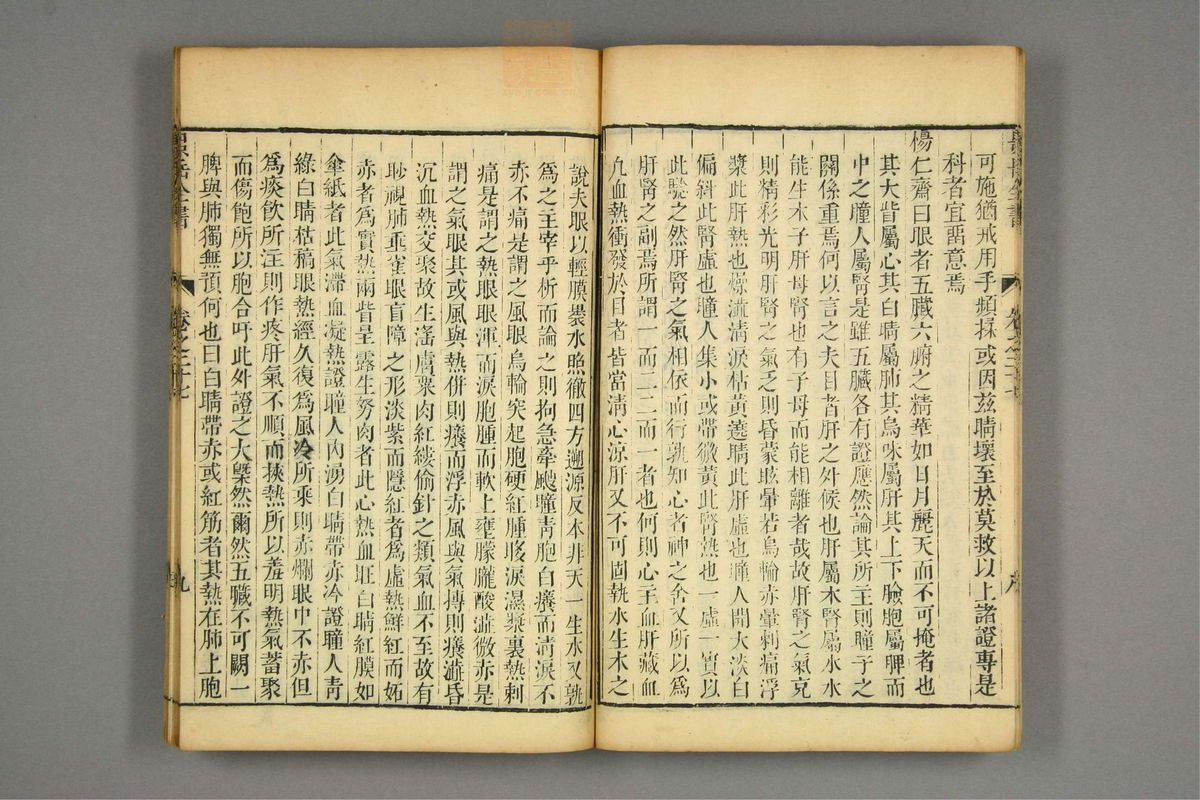 可施猶戒用手頻揉或因茲睛壞至於莫救以上諸證專是
科者宜畱意焉
楊仁齋曰眼者五臟六腑之精華如日月麗天而不可掩者也
其大眥屬心其白睛屬肺其烏味屬肝其上下瞼胞屬脾而
中之瞳人屬腎是雖五臟各有證應然論其所主則瞳子之
關係重焉何以言之夫目者肝之外候也肝屬木腎屬水水
能生木子肝母腎也有子母而能相離者哉故肝腎之氣克
則精彩光明肝腎之氣乏則昏蒙眩暈若烏輪赤暈刺痛浮
漿此肝熱也燥澁清淚枯黃遶睛此肝虛也瞳人開大淡白
偏斜此腎虛也瞳人集小或帶微黃此腎熱也一虛一實以
此驗之然肝腎之氣相依而行孰知心者神之舍又所以爲
肝腎之副焉所謂一而二二而一者也何則心主血肝藏血
凢血熱衝發於目者皆當清心涼肝又不可固執水生木之
說夫眼以輕膜褁水照徹四方遡源反本非天一生水又孰
爲之主宰乎析而論之則拘急牽颷瞳青胞白癢而清淚不
赤不痛是謂之風眼烏輪突起胞硬紅腫眵淚濕漿裏熱刺
痛是謂之熱眼眼渾而淚胞腫而軟上壅朦朧酸澁微赤是
謂之氣眼其或風與熱併則癢而浮赤風與氣搏則癢澁昏
沉血熱交聚故生滛膚粟肉紅縷偷針之類氣血不至故有
眇視肺垂雀眼盲障之形淡紫而隱紅者爲虛熱鮮紅而妬
赤者爲實熱兩眥呈露生努肉者此心熱血旺白睛紅膜如
傘紙者此氣滯血凝熱證瞳人內湧白睛帶赤冷證瞳人青
綠白睛枯稿眼熱經久復爲風冷所乘則赤爛眼中不赤但
爲痰飲所注則作疼肝氣不順而挾熱所以羞明熱氣蓄聚
而傷飽所以胞合吁此外證之大槩然爾然五臟不可闕一
脾與肺獨無預何也曰白睛帶赤或紅筋者其熱在肺上胞
卷之二十七
九